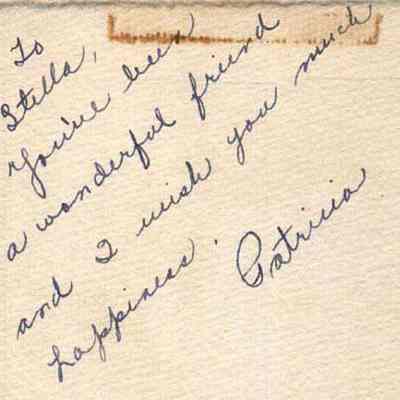 To
Stella,
You've been
a wonderful friend
and I wish you much
happiness.
Patricia